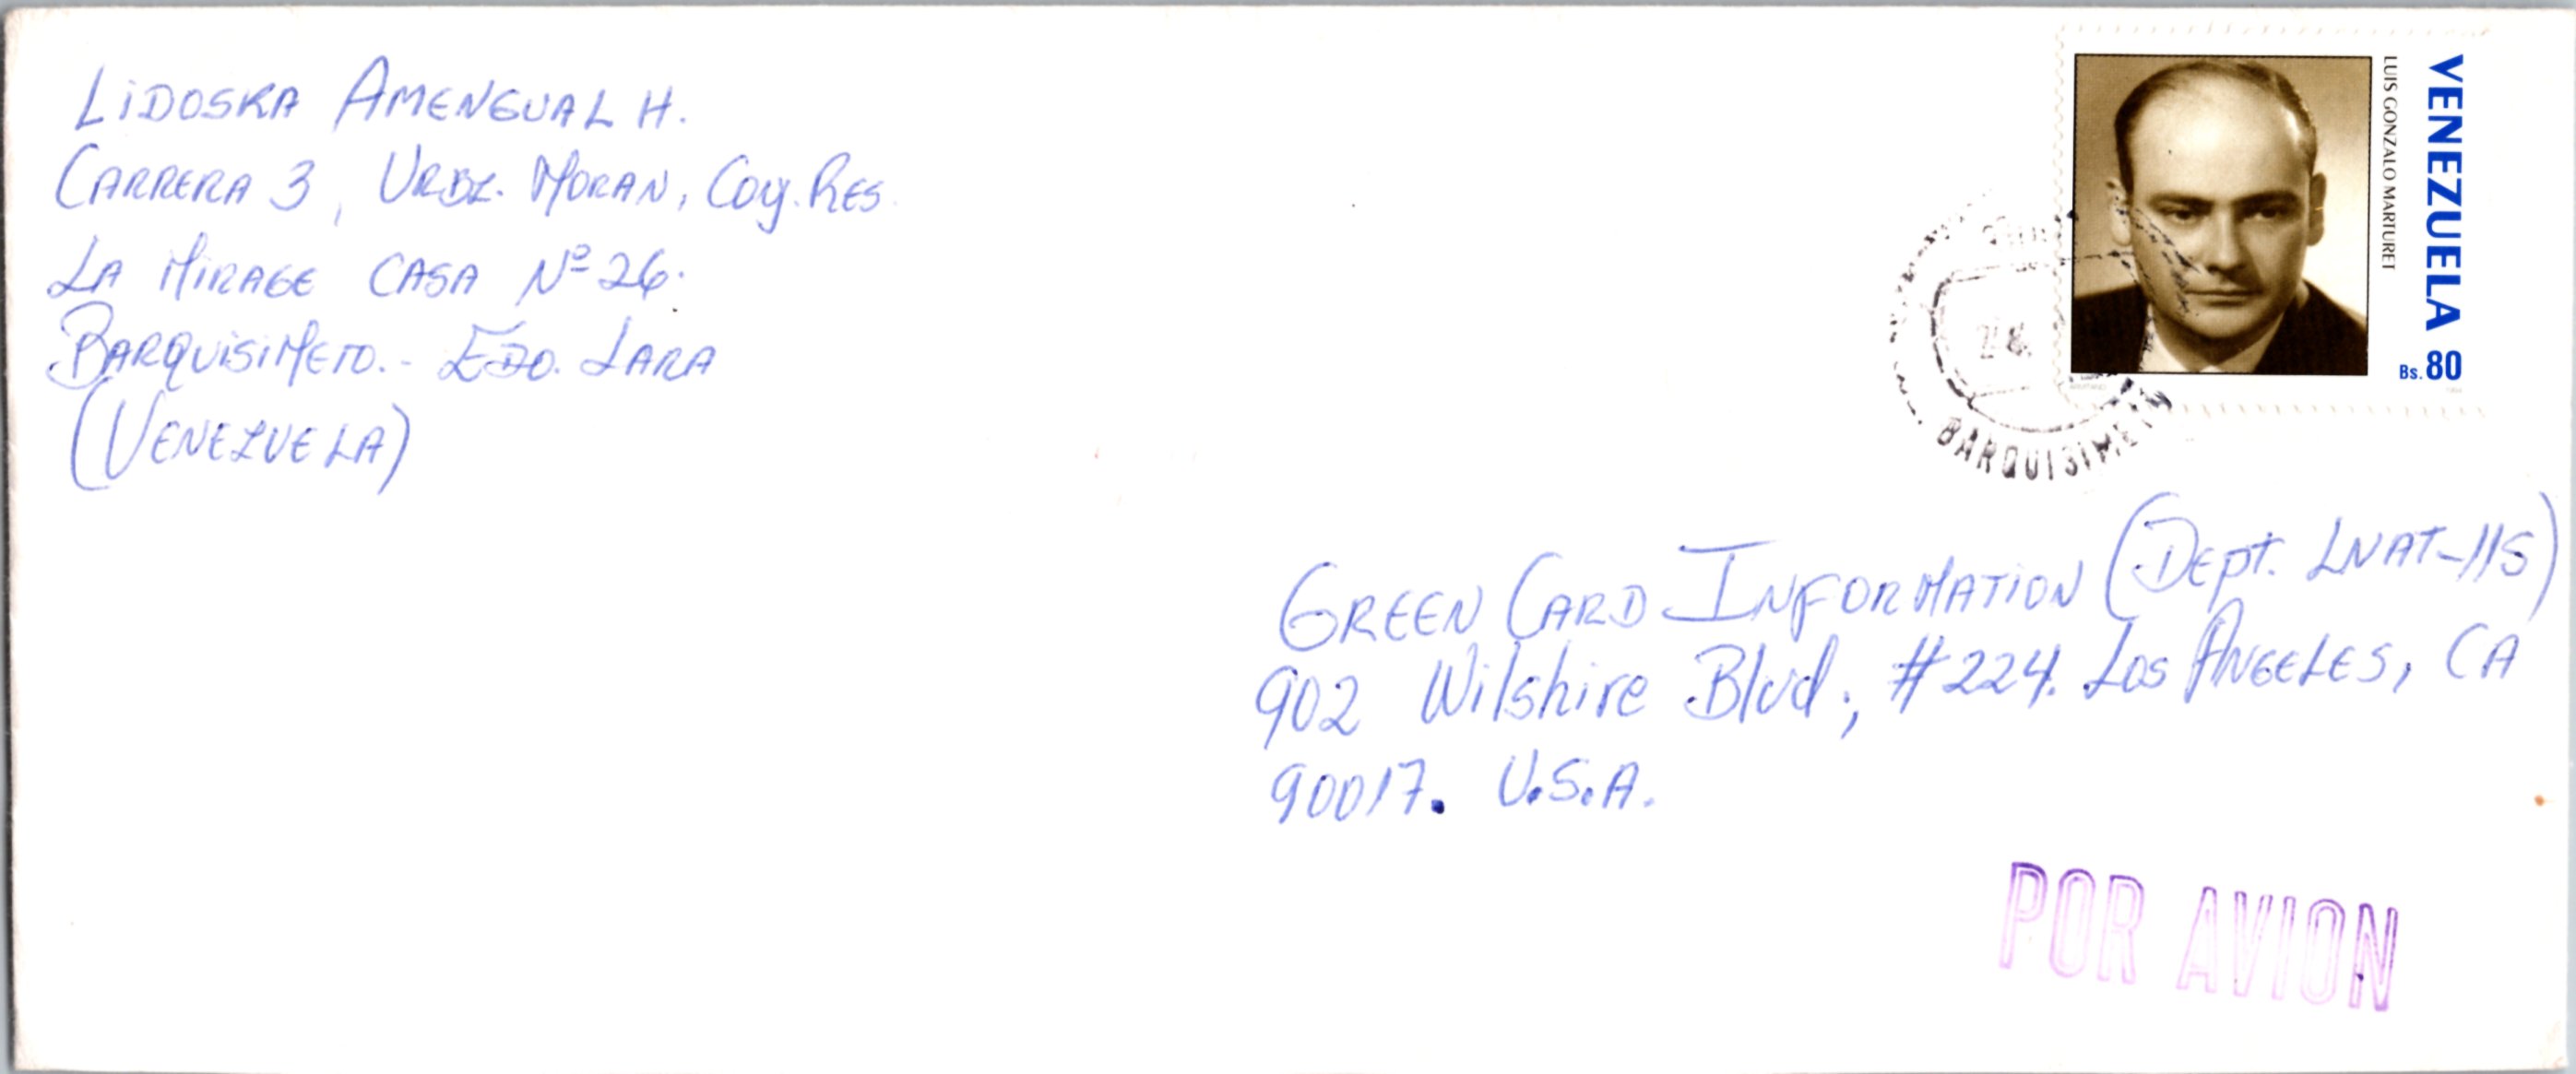 LiDOSKA AMENGUAL H.
CARRERA 3, URBZ. MORAN, Coy. RES.
LA MIRAGE CASA Nº 26.
BARQUISIMETO.- EDO. LARA
(VENEZUELA)
VENEZUELA
LUIS GONZALO MARTURET
Bs. 80
BARQUISIMETO
GREEN CARD INFORMATION (Dept. LNAT-115)
902 Wilshire Blvd., #224. LOS ANGELES, CA
90017. U.S.A.
POR AVION